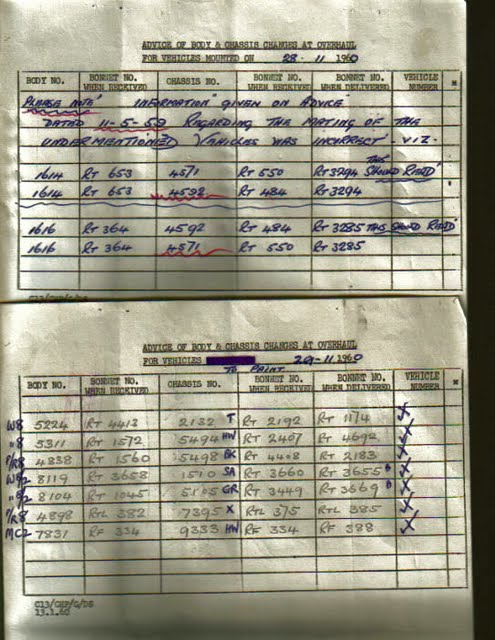 ADVICE OF BODY & CHASSIS CHANGES AT OVERHAUL
FOR VEHICLES MOUNTED ON 28-11 1960
BODY NO. BONNET NO. WHEN RECEIVED CHASSIS NO. BONNET NO. WHEN RECEIVED BONNET NO. WHEN DELIVERED VEHICLE NUMBER
PLEASE NOTE' INFORMATION GIVEN ON ADVICE
DATED 11-5-59 REGARDING THE MATING OF THE
UNDERMENTIONED VEHICLES WAS INCORRECT. VIZ.
1614 RT 653 4571 RT 550 RT3294 THIS SHOULD READ'
1614 RT 653 4592 RT 484 RT3294
1616 RT 364 4592 RT 484 RT 3285 THIS SHOULD READ'
1616 RT 364 4571 RT 550 RT 3285
ADVICE OF BODY & CHASSIS CHANGES AT OVERHAUL
FOR VEHICLES TO PAINT 29-11 1960
BODY NO. BONNET NO. WHEN RECEIVED CHASSIS NO. BONNET NO. WHEN RECEIVED BONNET NO. WHEN DELIVERED VEHICLE NUMBER
W8 5224 RT 4413 2132 T RT 2192 RT 1174 X
"8 5311 RT 1572 5494 HW RT 2407 RT 4692 X
P/R8 4838 RT 1560 5498 BK RT 4408 RT 2183 X
W82 8119 RT 3658 1510 SA RT 3660 RT 3655 B X
"82 8104 RT 1045 5105 GR RT 3449 RT 3669 B X
P/R8 4898 RTL 382 7395 X RTL 375 RTL 385 X
MC2 7831 RF 334 9333 HW RF 334 RF 388 X
C13/CHP/G/DS
13.1.60